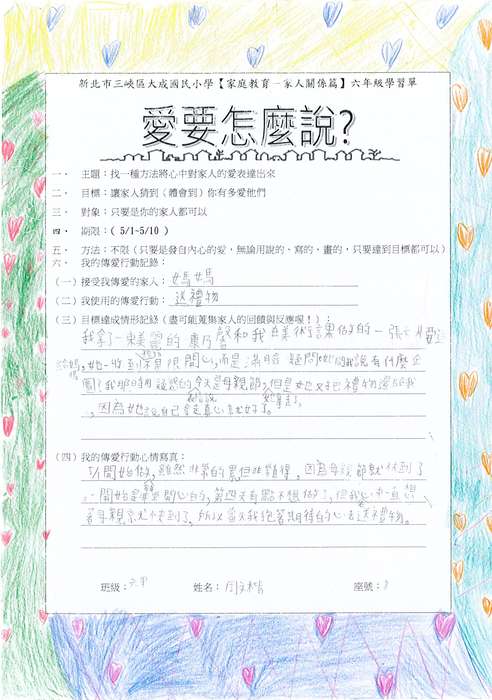 新北市三峽區大成國民小學【家庭教育－家人關係篇】六年級學習單
愛要怎麼說?
一． 主題：找一種方法將心中對家人的愛表達出來
二． 目標：讓家人猜到(體會到)你有多愛他們
三． 對象：只要是你的家人都可以
四． 期限：( 5/1~5/10 )
五． 方法：不限(只要是發自內心的愛，無論用說的、寫的、畫的，只要達到目標都可以)
六． 我的傳愛行動記錄：
(一) 接受我傳愛的家人： 媽媽
(二) 我使用的傳愛行動： 送禮物
(三) 目標達成情形記錄(盡可能蒐集家人的回饋與反應喔！)：
我拿了一束美麗的 和我在美術課做的一張卡
給媽媽，她一收到 不是很開心，而是滿臉疑問 我說有什麼企
圖？我 今天是母親節，但是她又把禮物還給我
，因為她 自己 真心就好了。
(四) 我的傳愛行動心情寫真：
一開始做，雖然非常的累但非常值得，因為母親節就快到了
，一開始是 開心的，第四天有點不想做了，但我心中一直想
著母親節就快到了，所以當天我抱著期待的心去送禮物。
班級：六甲 姓名： 座號：